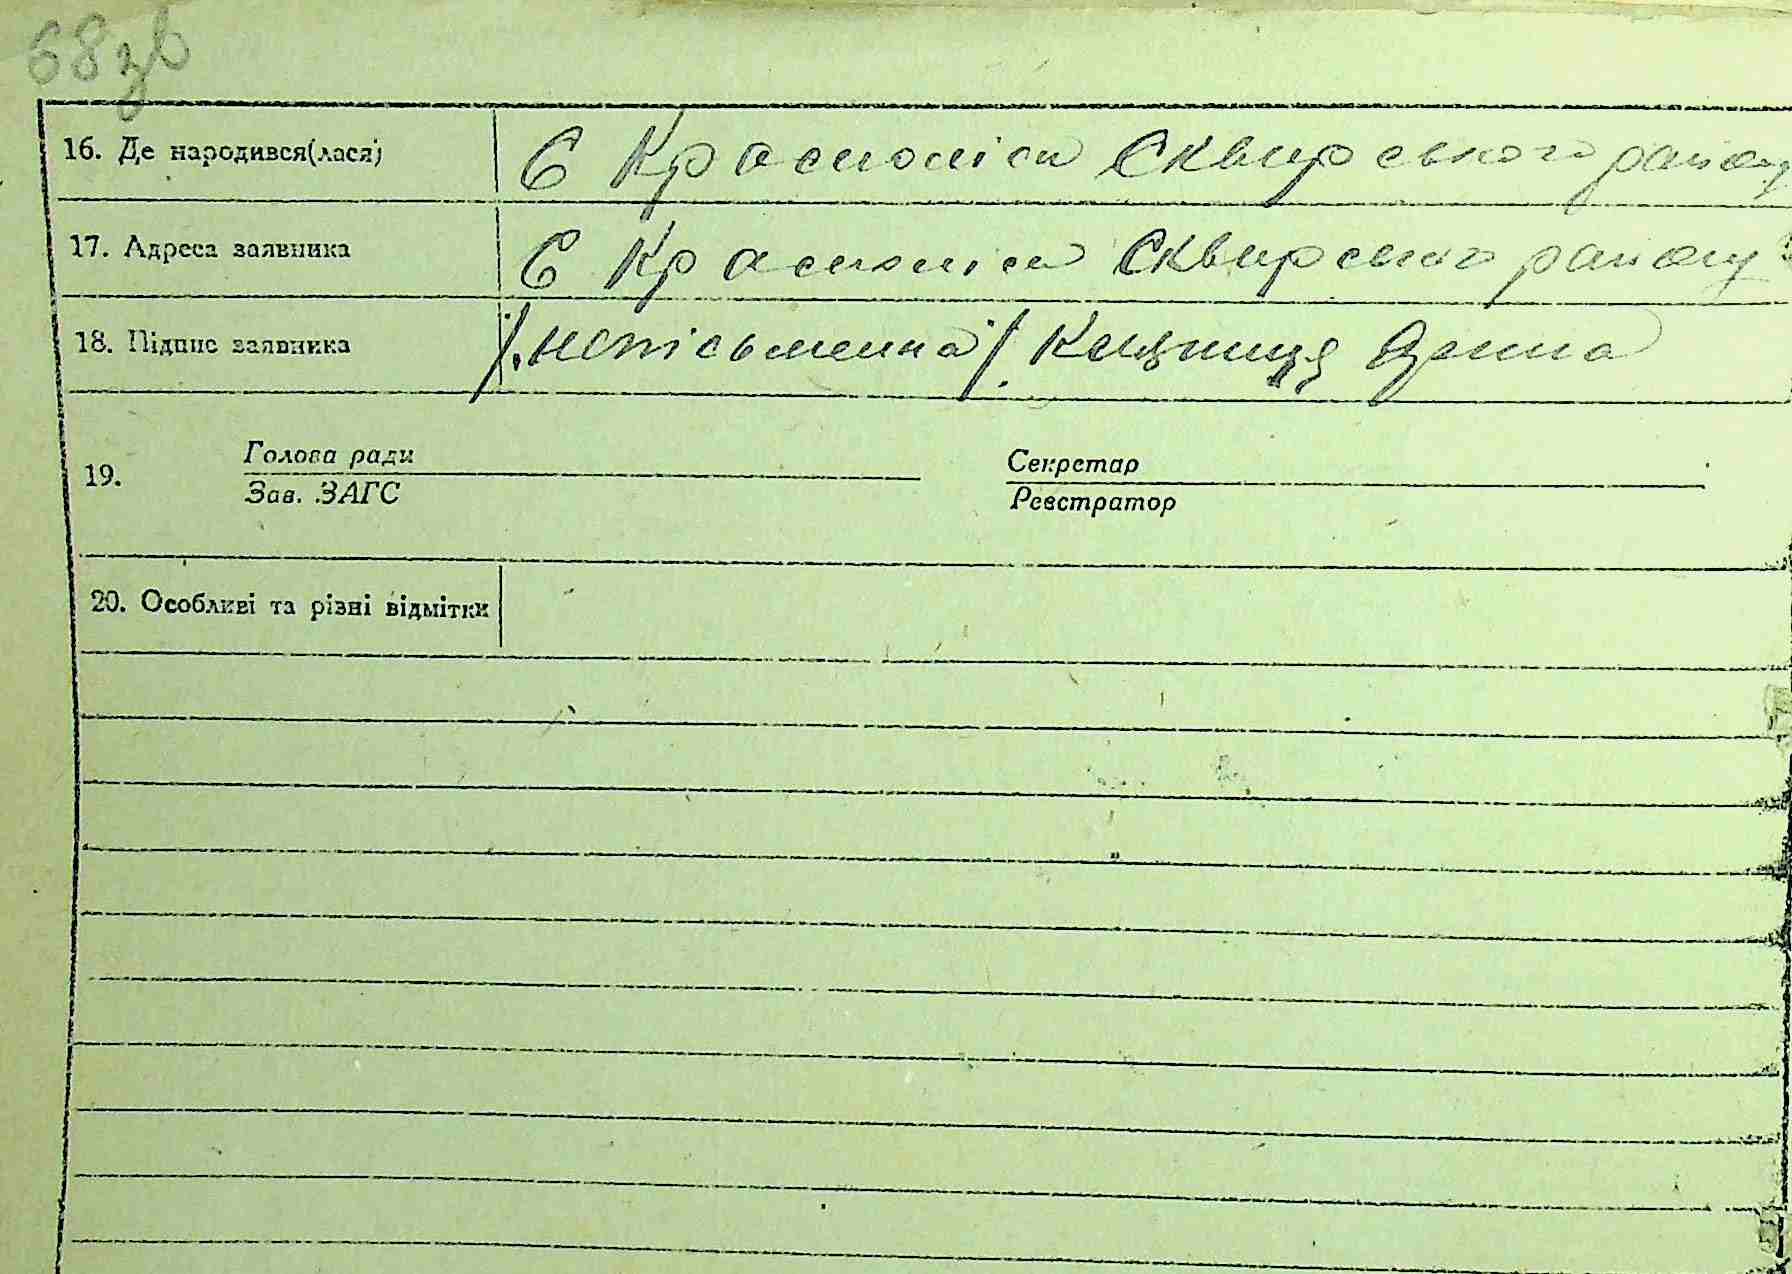 68 зв
16. Де народився(лася) С Краснолісы Сквирського району
17. Адреса заявника С Краснолісы Сквирського району
18. Підпис заявника /.неписьменна/.
19. Голова ради Секретар
Зав. ЗАГС Реєстратор
20. Особливі та різні відмітки